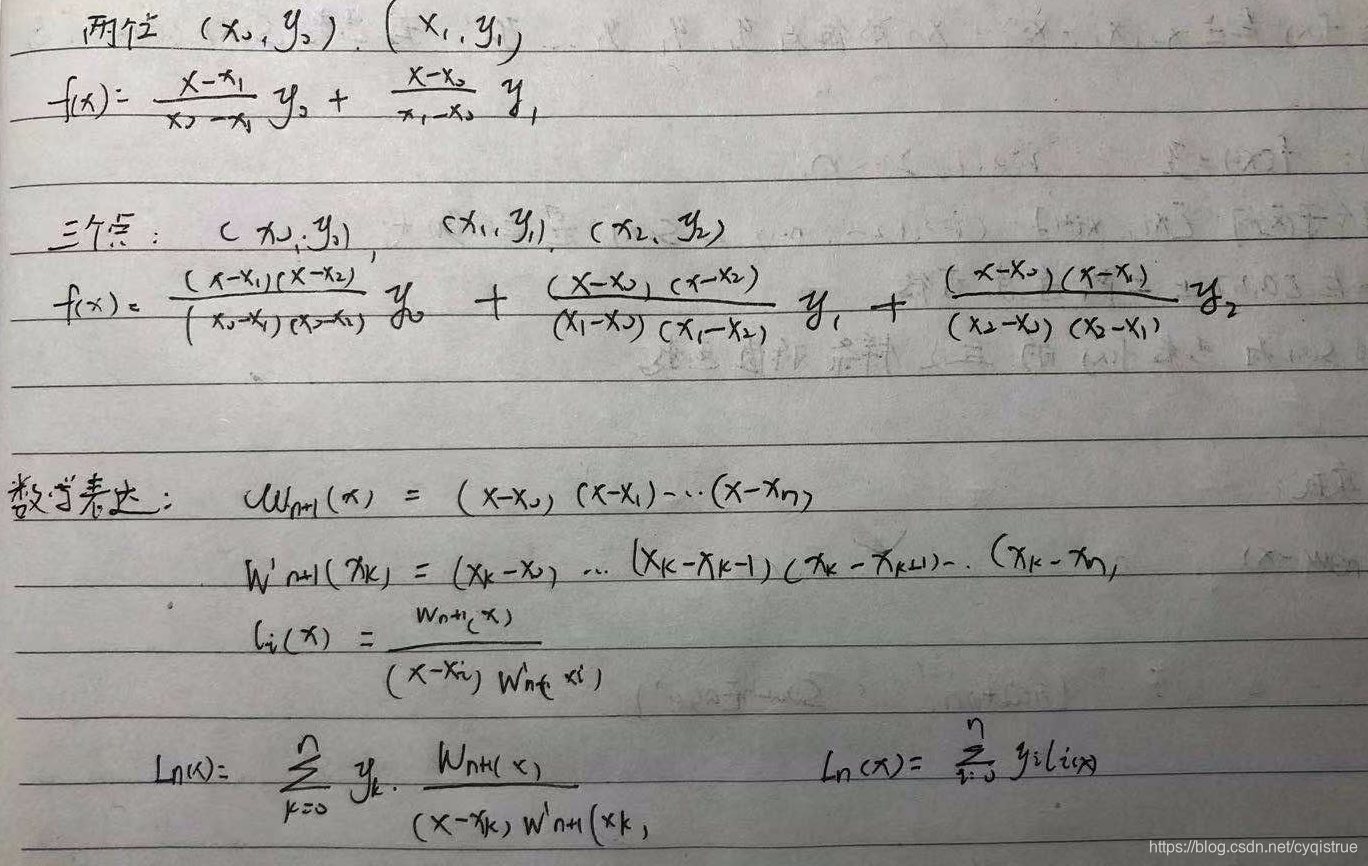 两位 (x₀, y₀). (x₁, y₁)
f(x) = \frac{x-x₁}{x₀-x₁} y₀ + \frac{x-x₀}{x₁-x₀} y₁
三个点: (x₀, y₀), (x₁, y₁). (x₂, y₂)
f(x) = \frac{(x-x₁)(x-x₂)}{(x₀-x₁)(x₀-x₂)} y₀ + \frac{(x-x₀)(x-x₂)}{(x₁-x₀)(x₁-x₂)} y₁ + \frac{(x-x₀)(x-x₁)}{(x₂-x₀)(x₂-x₁)} y₂
数学表达: W_{n+1}(x) = (x-x₀)(x-x₁)-...(x-x_n)
W'_{n+1}(x_k) = (x_k-x₀) ... (x_k-x_{k-1})(x_k-x_{k+1})-..(x_k-x_n)
l_i(x) = \frac{W_{n+1}(x)}{(x-x_i) W'_{n+1}(x_i)}
L_n(x) = \sum_{k=0}^{n} y_k · \frac{W_{n+1}(x)}{(x-x_k) W'_{n+1}(x_k)} L_n(x) = \sum_{i=0}^{n} y_i l_i(x)
https://blog.csdn.net/cyqistrue